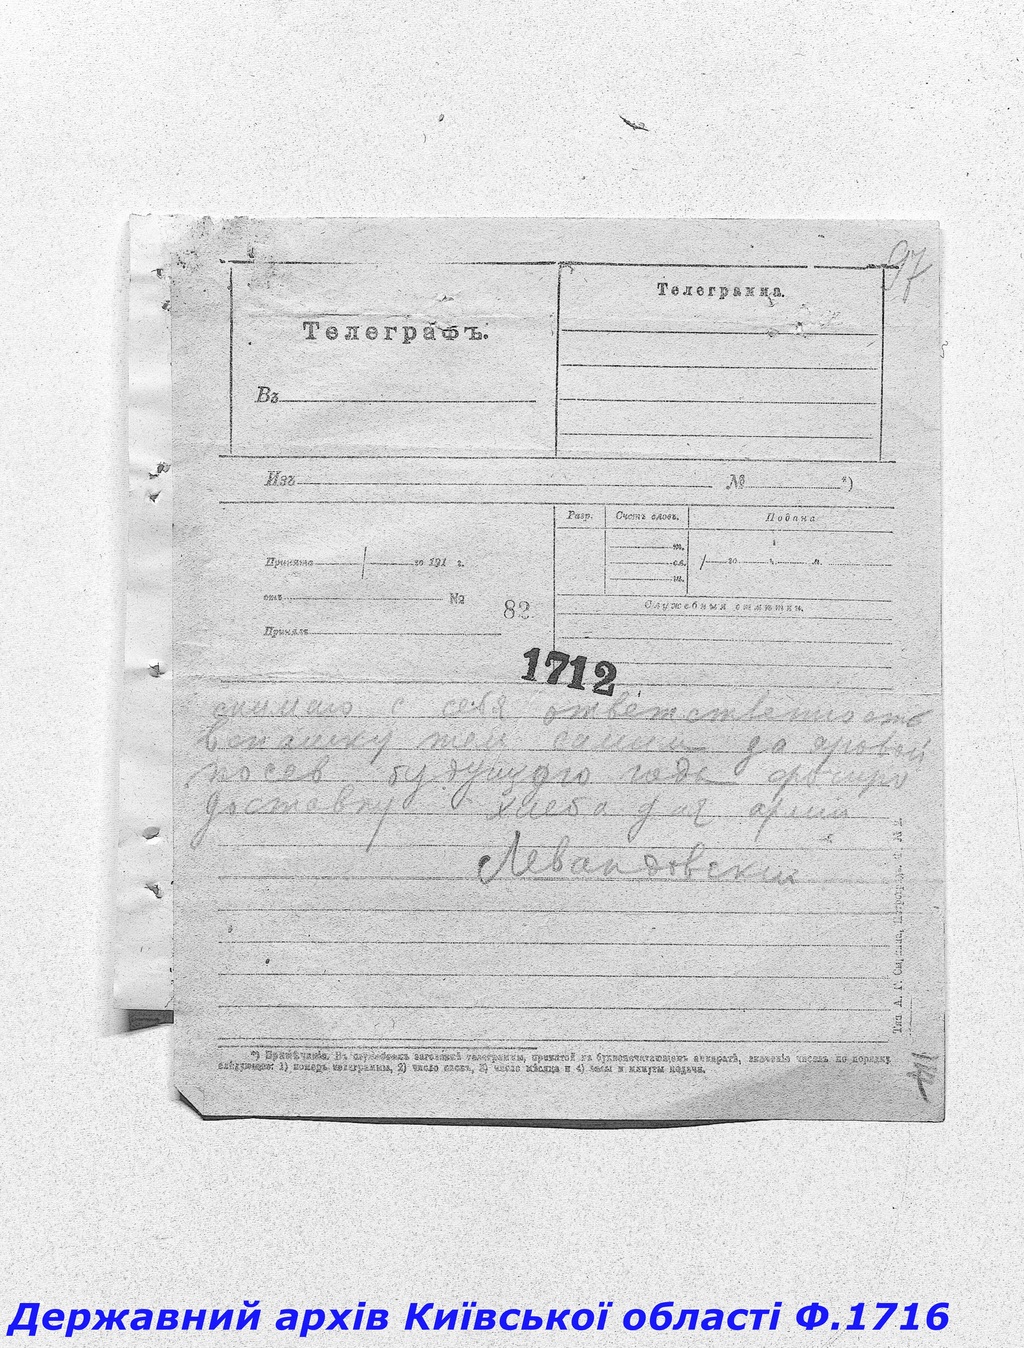 97
Телеграмма.
Телеграфъ.
Въ
Изъ № *)
Разр. Счетъ словъ. Подана
Принята го 191 г.
т.
сл.
го ч. м.
ш.
отъ №
82
Служебныя отмѣтки.
Принялъ
1712
снимаю с себя ответственность
вспашку тем самим да яровой
посев будущого года
доставку хлеба для армии
Левандовский
Тип. А. Г. Петроградъ. № 2.
*) Примѣчаніе. Въ служебномъ заголовкѣ телеграммы, принятой на буквопечатающемъ аппаратѣ, значеніе чиселъ по порядку
слѣдующее: 1) номеръ телеграммы, 2) число словъ, 3) число мѣсяца и 4) часы и минуты подачи.
Державний архів Київської області Ф.1716